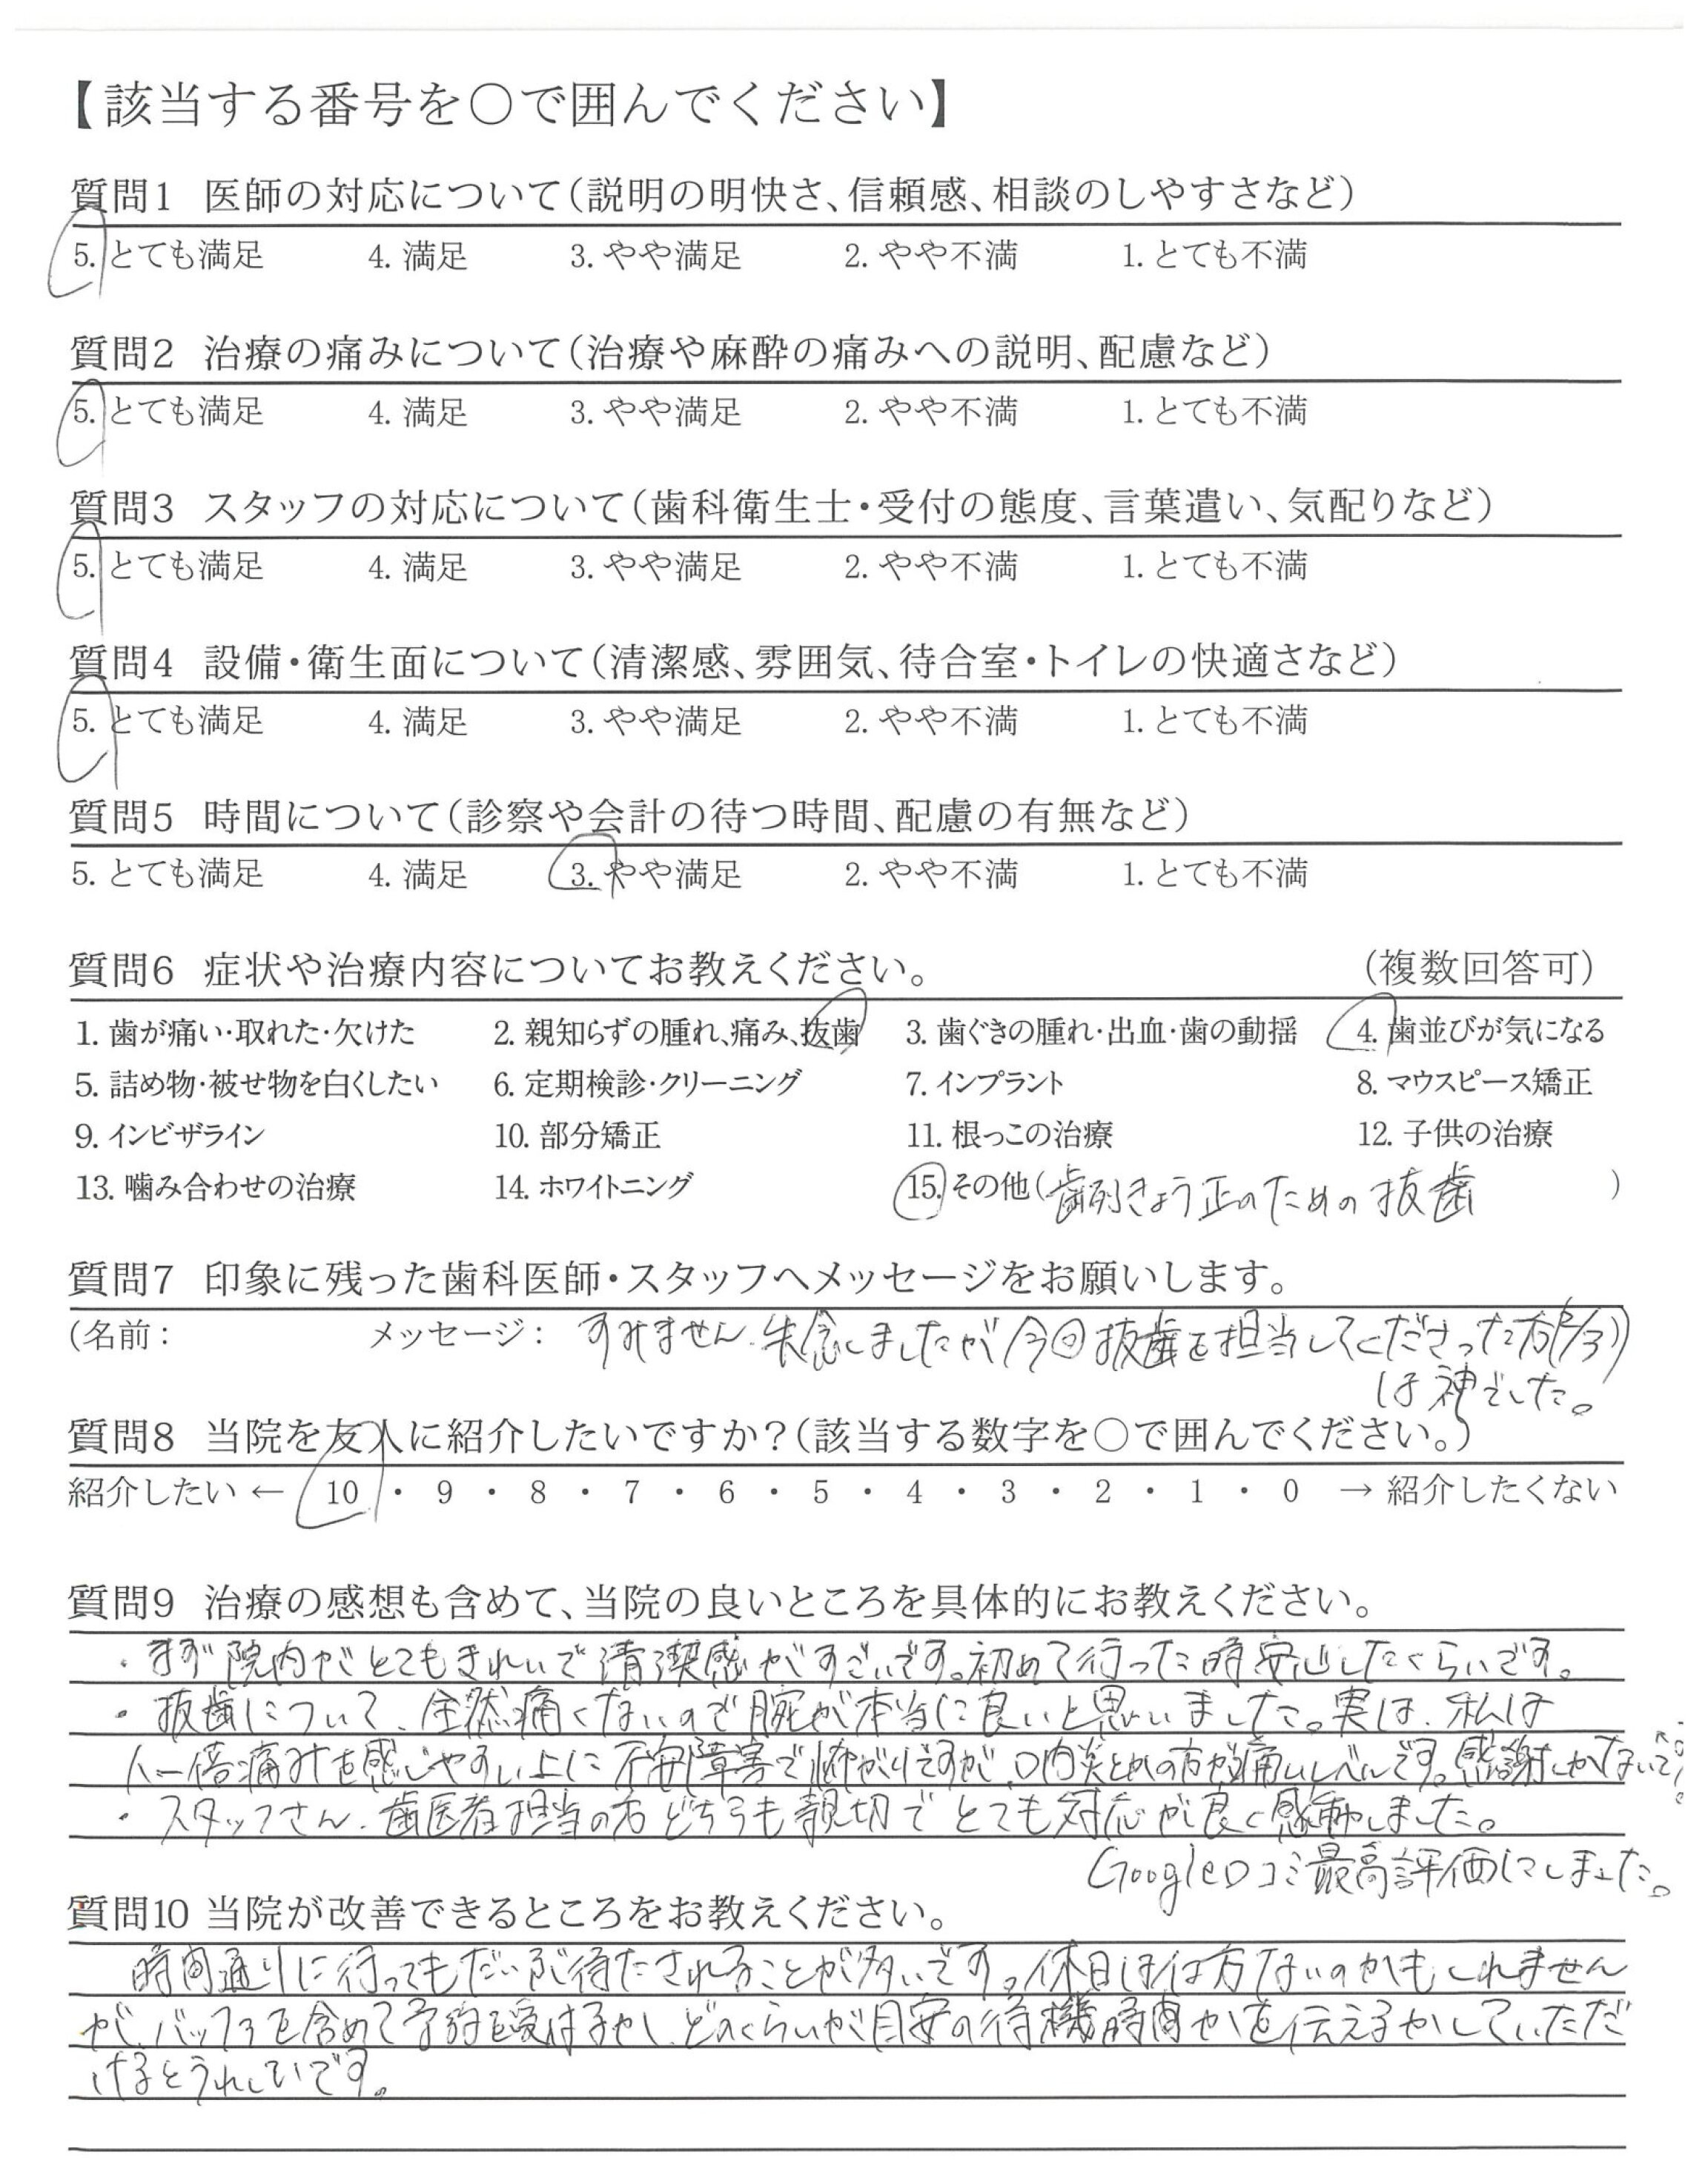 【該当する番号を〇で囲んでください】
質問1 医師の対応について(説明の明快さ、信頼感、相談のしやすさなど)
5. とても満足 4. 満足 3. やや満足 2. やや不満 1. とても不満
質問2 治療の痛みについて(治療や麻酔の痛みへの説明、配慮など)
5. とても満足 4. 満足 3. やや満足 2. やや不満 1. とても不満
質問3 スタッフの対応について(歯科衛生士・受付の態度、言葉遣い、気配りなど)
5. とても満足 4. 満足 3. やや満足 2. やや不満 1. とても不満
質問4 設備・衛生面について(清潔感、雰囲気、待合室・トイレの快適さなど)
5. とても満足 4. 満足 3. やや満足 2. やや不満 1. とても不満
質問5 時間について(診察や会計の待つ時間、配慮の有無など)
5. とても満足 4. 満足 3. やや満足 2. やや不満 1. とても不満
質問6 症状や治療内容についてお教えください。 (複数回答可)
1. 歯が痛い・取れた・欠けた 2. 親知らずの腫れ、痛み、抜歯 3. 歯ぐきの腫れ・出血・歯の動揺 4. 歯並びが気になる
5. 詰め物・被せ物を白くしたい 6. 定期検診・クリーニング 7. インプラント 8. マウスピース矯正
9. インビザライン 10. 部分矯正 11. 根っこの治療 12. 子供の治療
13. 噛み合わせの治療 14. ホワイトニング 15. その他(歯列きょう正のための抜歯)
質問7 印象に残った歯科医師・スタッフへメッセージをお願いします。
(名前: メッセージ: すみません、失念しましたが今回抜歯を担当してくださった方
は神でした。
質問8 当院を友人に紹介したいですか?(該当する数字を〇で囲んでください。)
紹介したい ← 10 ・ 9 ・ 8 ・ 7 ・ 6 ・ 5 ・ 4 ・ 3 ・ 2 ・ 1 ・ 0 → 紹介したくない
質問9 治療の感想も含めて、当院の良いところを具体的にお教えください。
・まず院内がとてもきれいで清潔感がすごいです。初めて行った時安心したくらいです。
・抜歯について、全然痛くないので腕が本当に良いと思いました。実は、私は
人一倍痛みを感じやすい上に不安障害で怖がりですが、口内炎とかの方が痛いレベルです。感謝しかない
・スタッフさん、歯医者担当の方どちらも親切でとても対応が良く感動しました。
Google口コミ最高評価にしました。
質問10 当院が改善できるところをお教えください。
時間通りに行ってもだいぶ待たされることが多いです。休日は仕方ないのかもしれません
が、バッファを含めて予約を受付るか、どのくらいが目安の待機時間かを伝えるかしていただ
けるとうれしいです。